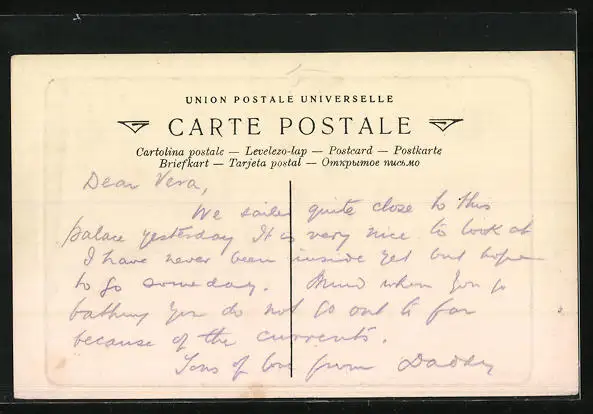 UNION POSTALE UNIVERSELLE
CARTE POSTALE
Cartolina postale — Levelezo-lap — Postcard — Postkarte
Briefkart — Tarjeta postal — Открытое письмо
Dear Vera,
We sailed quite close to this
palace yesterday It is very nice to look at
I have never been inside yet but hope
to go someday. Mind when you go
bathing you do not go out to far
because of the currents.
Tons of love from Daddy